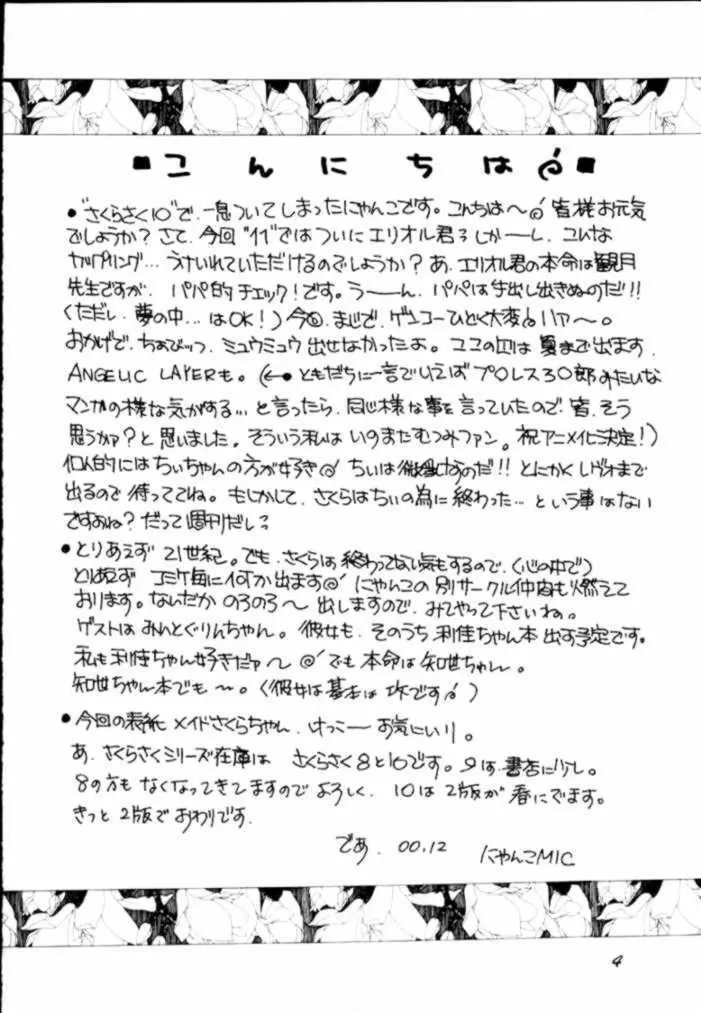 ■こんにちは■
●"さくらさく10"で、一息ついてしまったにゃんこです。こんちは〜 皆様お元気
でしょうか？さて、今回"11"ではついにエリオル君！しかーし、こんな
カップリング…うけいれていただけるのでしょうか？あ、エリオル君の本命は観月
先生ですが、パパ的チェック！です。うーーん、パパは手出し出きぬのだ!!
(ただし、夢の中…はOK！) 今回、まじで、ゲンコーひどく大変 ハァ〜。
おかげで、ちょびっツ、ミュウミュウ出せなかったよ。ココの は夏まで出ます、
ANGELIC LAYERも。(←●ともだちに一言でいえばプロレス3〇郎みたいな
マンガの様な気がする…と言ったら、同じ様な事を言っていたので、皆、そう
思うかァ？と思いました。そういう私はいのまたむつみファン。祝アニメ化決定！)
個人的にはちぃちゃんの方が好き ちぃは なのだ!! とにかく まで
出るので待っててね。もしかして、さくらはちぃの為に終わった…という事はない
ですよね？だって週刊だし？
●とりあえず 21世紀。でも、さくらは終わってない気もするので、(心の中で)
とりあえず コミケ毎に何か出ます にゃんこの別サークル仲間も燃えて
おります。なんだか のろのろ〜 出しますので、みてやって下さいね。
ゲストはみんとぐりんちゃん。彼女も、そのうち利佳ちゃん本 出す予定です。
私も利佳ちゃん好きだァ〜 でも本命は知世ちゃん。
知世ちゃん本でも〜。(彼女は基本は攻です)
●今回の表紙 メイドさくらちゃん、けっこーお気にいり。
あ、さくらさくシリーズ在庫は さくらさく8と10です。9は書店に少し。
8の方もなくなってきてますのでよろしく、10は2版が春にでます。
きっと2版でおわりです。
であ、00.12 にゃんこMIC
4